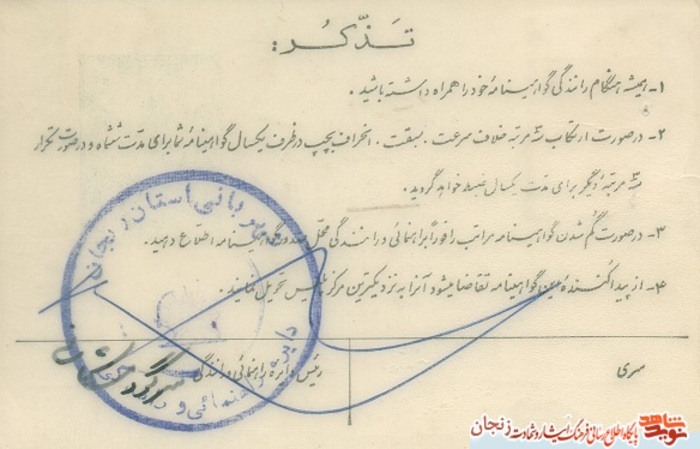 تذکر:
۱- همیشه هنگام رانندگی گواهینامه خود را همراه داشته باشید.
۲- در صورت ارتکاب سه مرتبه خلاف سرعت. سبقت. انحراف بچپ در ظرف یکسال گواهینامه شما برای مدت ششماه و در صورت تکرار
سه مرتبه دیگر برای مدت یکسال ضبط خواهد گردید.
۳- در صورت گم شدن گواهینامه مراتب را فوراً براهنمائی و رانندگی محل صدور گواهینامه اطلاع دهید.
۴- از پیدا کننده این گواهینامه تقاضا میشود آنرا به نزدیکترین مرکز پلیس تحویل نمایند.
سری
رئیس دایره راهنمائی و رانندگی
سرگرد
شهربانی استان زنجان
دایره راهنمائی و
نوید شاهد
پایگاه اطلاع رسانی فرهنگ ایثار و شهادت زنجان